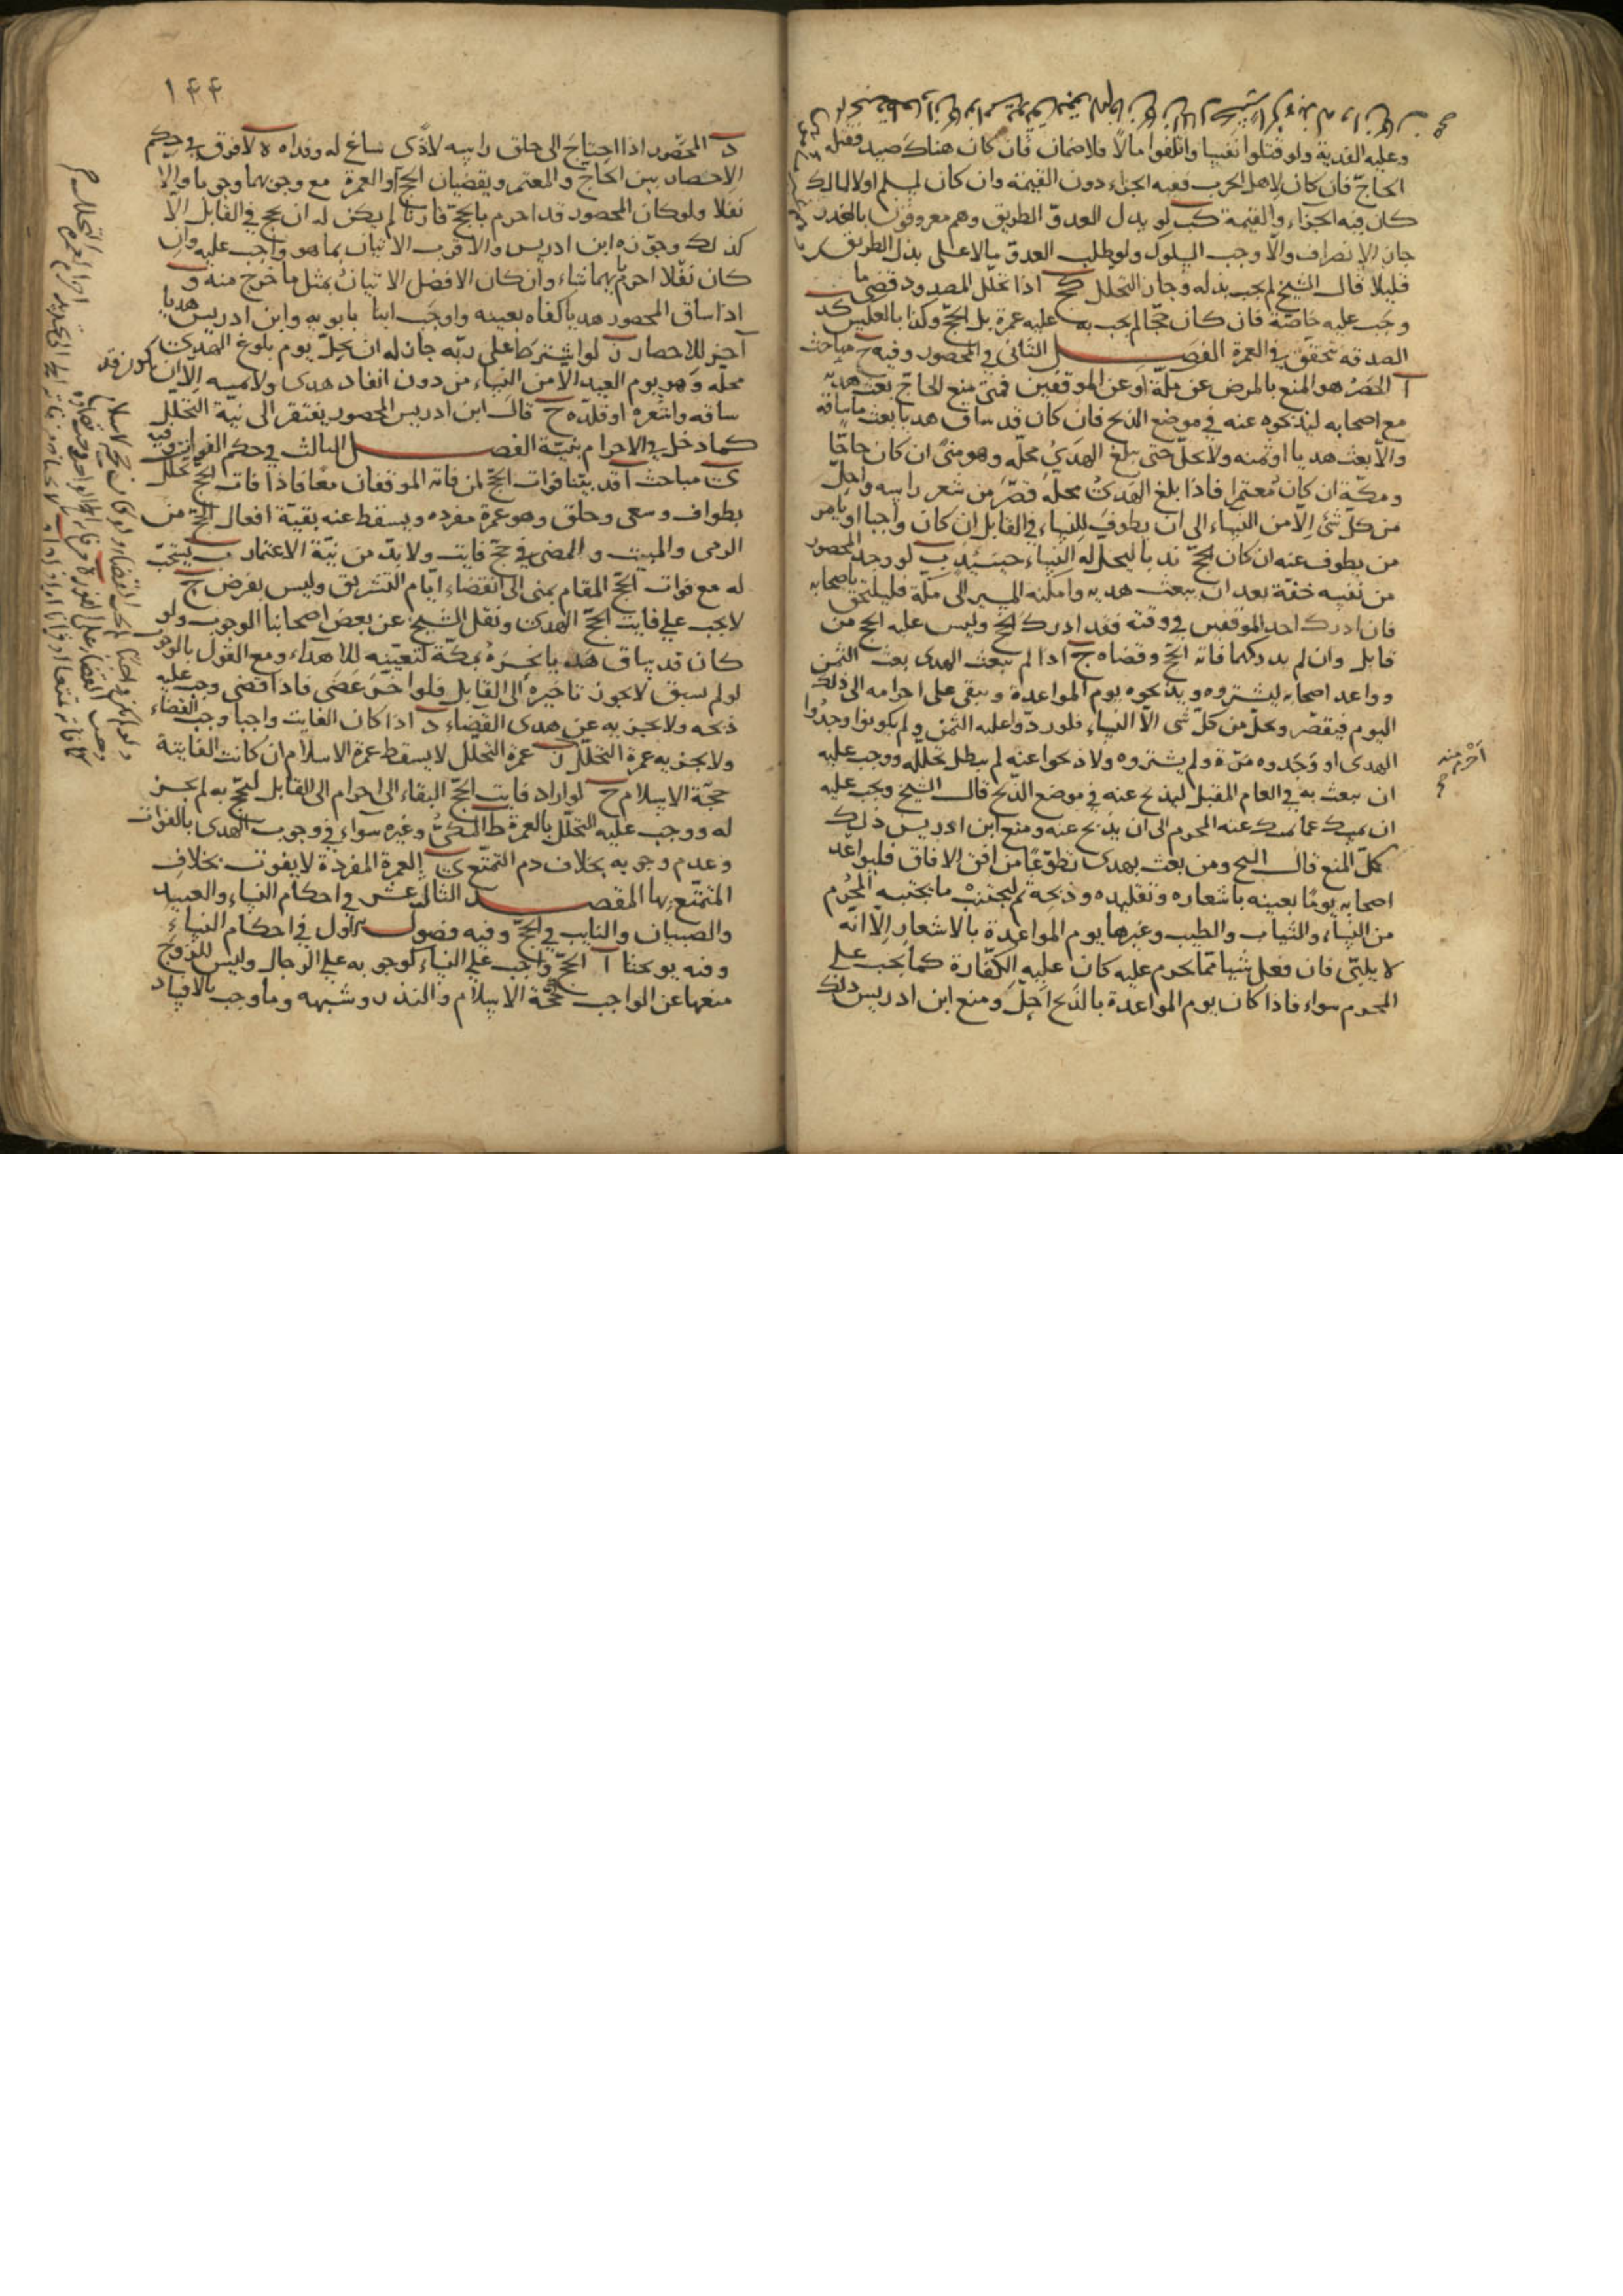 وعليه الفدية ولو قتلوا نفسا واتلفوا مالا فلا ضمان فان كان هناك صيد فقتله
الحاج فان كان لاهل الحرب ففيه الجزاء دون القيمة وان كان لمسلم اولا لمالك
كان فيه الجزاء والقيمة كب لو بدل العدو الطريق وهم معروفون بالغدر
جاز الانصراف والا وجب السلوك ولو طلب العدو مالا على بذل الطريق
قليلا قال الشيخ لم يجب بذله وجاز التحلل كج اذا تحلل المصدود قضى ما
وجب عليه خاصة فان كان حجا لم يجب به عليه عمرة بل الحج وكذا بالعكس كد
الصد قد يتحقق في العمرة الفصل الثاني في المحصور وفيه ح مباحث
ا الحصر هو المنع بالمرض عن مكة او عن الموقفين فمتى منع الحاج بعث هديه
مع اصحابه ليذبحوه عنه في موضع الذبح فان كان قد ساق هديا بعث ما ساقه
والا بعث هديا او ثمنه ولا يحل حتى يبلغ الهدي محله وهو منى ان كان حاجا
ومكة ان كان معتمرا فاذا بلغ الهدى محله قصر من شعر راسه واحل
من كل شئ الا من النساء الى ان يطوف للنساء في القابل ان كان واجبا او يامر
من يطوف عنه ان كان الحج ندبا ليحل له النساء حينئذ ب لو وجد المحصور
من نفسه خفة بعد ان يبعث هديه وامكنه المسير الى مكة فليلتحق باصحابه
فان ادرك احد الموقفين في وقته فقد ادرك الحج وليس عليه الحج من
قابل وان لم يدركهما فاته الحج وقضاه ج اذا لم يبعث الهدى بعث الثمن
وواعد اصحابه ليشتروه ويذبحوه يوم المواعدة ويبقى على احرامه الى ذلك
اليوم فيقصر ويحل من كل شئ الا النساء فلو ردوا عليه الثمن ولم يكونوا وجدوا
الهدى او وجدوه مرة ولم يشتروه ولا ذبحوا عنه لم يبطل تحلله ووجب عليه
ان يبعث به في العام المقبل ليذبح عنه في موضع الذبح قال الشيخ ويجب عليه
ان يمسك عما يمسك عنه المحرم الى ان يذبح عنه ومنع ابن ادريس ذلك
كل المنع قال الشيخ ومن بعث بهدى تطوعا من افق الافاق فليواعد
اصحابه يوما بعينه باشعاره وتقليده وذبحه ثم ليجتنب ما يجتنبه المحرم
من النساء والثياب والطيب وغيرها يوم المواعدة بالاشعار الا انه
لا يلبى فان فعل شيئا مما يحرم عليه كان عليه الكفارة كما يجب على
المحرم سواء فاذا كان يوم المواعدة بالذبح احل ومنع ابن ادريس ذلك
١۴۴
د المحصور اذا احتاج الى حلق راسه لاذى ساغ له وفداه ه لا فرق في حكم
الاحصار بين الحاج والمعتمر ويقضيان الحج والعمرة مع وجوبهما وجوبا والا
نفلا ولو كان المحصور قد احرم بالحج قارنا لم يكن له ان يحج في القابل الا
كذلك وجوزه ابن ادريس والاقرب الاتيان بما هو واجب عليه وان
كان نفلا احرم بايهما شاء وان كان الافضل الاتيان بمثل ما خرج منه و
اذا ساق المحصور هديا كفاه بعينه واوجب ابنا بابويه وابن ادريس هديا
اخر للاحصار ز لو اشترط على ربه جاز له ان يحل يوم بلوغ الهدى
محله وهو يوم العيد الا من النساء من دون انفاذ هدى ولا ثمنه الا ان يكون قد
ساقه واشعره او قلده ح قال ابن ادريس المحصور يفتقر الى نية التحلل
كما دخل في الاحرام بنية الفصل الثالث في حكم الفوات وفيه
ى مباحث ا قد بينا فوات الحج لمن فاته الموقفان معا فاذا فاته الحج تحلل
بطواف وسعى وحلق وهو عمرة مفرده ويسقط عنه بقية افعال الحج من
الرمى والمبيت والمضى في حج فايت ولا بد من نية الاعتمار ب يستحب
له مع فوات الحج المقام بمنى الى انقضاء ايام التشريق وليس بفرض ج
لا يجب على فايت الحج الهدى ونقل الشيخ عن بعض اصحابنا الوجوب ولو
كان قد ساق هديا نحره بمكة لتعينه للاهداء ومع القول بالوجوب
لو لم يسبق لا يجوز تاخيره الى القابل فلو اخر عصى فاذا قضى وجب عليه
ذبحه ولا يجزيه عن هدى القضاء د اذا كان الفايت واجبا وجب القضاء
ولا يجزيه عمرة التحلل ز عمرة التحلل لا يسقط عمرة الاسلام ان كانت الفايتة
حجة الاسلام ح لو اراد فايت الحج البقاء الى احرام الى القابل ليحج به لم يجز
له ووجب عليه التحلل بالعمرة ط المكى وغيره سواء في وجوب الهدى بالفوات
وعدم وجوبه بخلاف دم التمتع ى العمرة المفردة لا يفوت بخلاف
المتمتع بها المقصد الثالث عشر في احكام النساء والعبيد
والصبيان والنايب في الحج وفيه فصول الاول في احكام النساء
وفيه يو بحثا ا الحج واجب على النساء كوجوبه على الرجال وليس للزوج
منعها عن الواجب كحجة الاسلام والنذر وشبهه وما وجب بالافساد